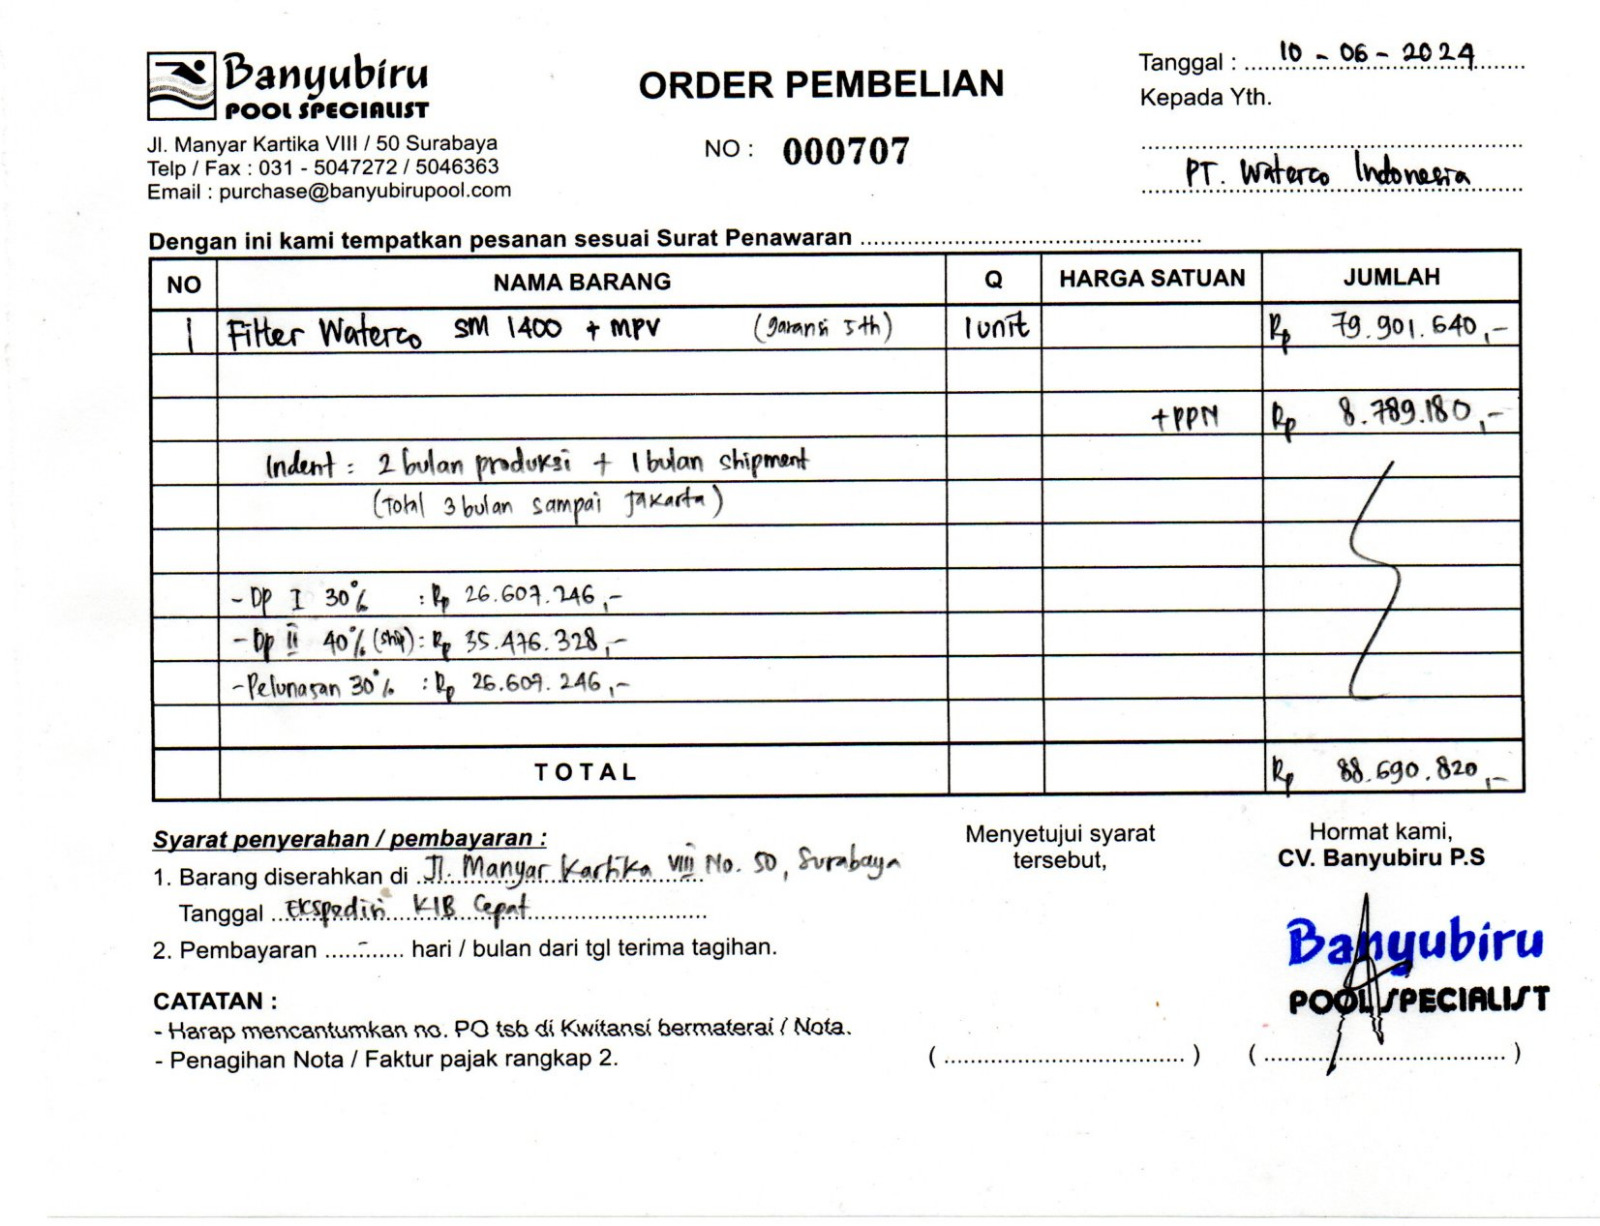 Banyubiru
POOL SPECIALIST
Jl. Manyar Kartika VIII / 50 Surabaya
Telp / Fax : 031 - 5047272 / 5046363
Email : purchase@banyubirupool.com
ORDER PEMBELIAN
NO : 000707
Tanggal : 10 - 06 - 2024
Kepada Yth.
PT. Waterco Indonesia
Dengan ini kami tempatkan pesanan sesuai Surat Penawaran
NO NAMA BARANG Q HARGA SATUAN JUMLAH
1 Filter Waterco SM 1400 + MPV (garansi 5 th) 1 unit Rp 79.901.640,-
+PPN Rp 8.789.180,-
Indent : 2 bulan produksi + 1 bulan shipment
(Total 3 bulan sampai Jakarta)
- DP I 30% : Rp 26.607.246,-
- Dp II 40% (ship) : Rp 35.476.328,-
- Pelunasan 30% : Rp 26.607.246,-
TOTAL Rp 88.690.820,-
Syarat penyerahan / pembayaran :
1. Barang diserahkan di Jl. Manyar Kartika VIII No. 50, Surabaya
Tanggal Ekspedisi KIB Cepat
2. Pembayaran - hari / bulan dari tgl terima tagihan.
CATATAN :
- Harap mencantumkan no. PO tsb di Kwitansi bermaterai / Nota.
- Penagihan Nota / Faktur pajak rangkap 2.
Menyetujui syarat
tersebut,
(                    )
Hormat kami,
CV. Banyubiru P.S
Banyubiru
POOL SPECIALIST
(                    )